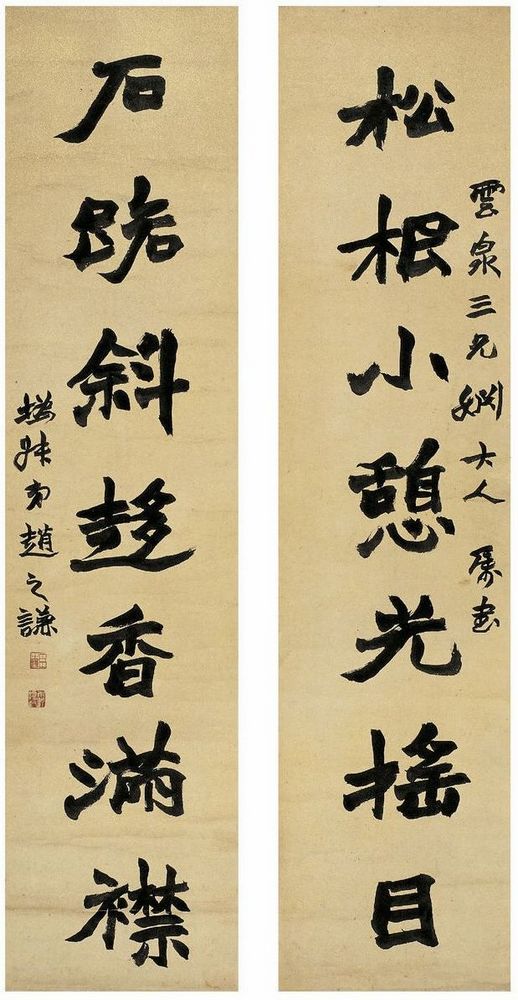 雲泉三兄婣大人 屬書
松根小憩光搖目
石路斜趍香滿襟
撝叔弟趙之謙